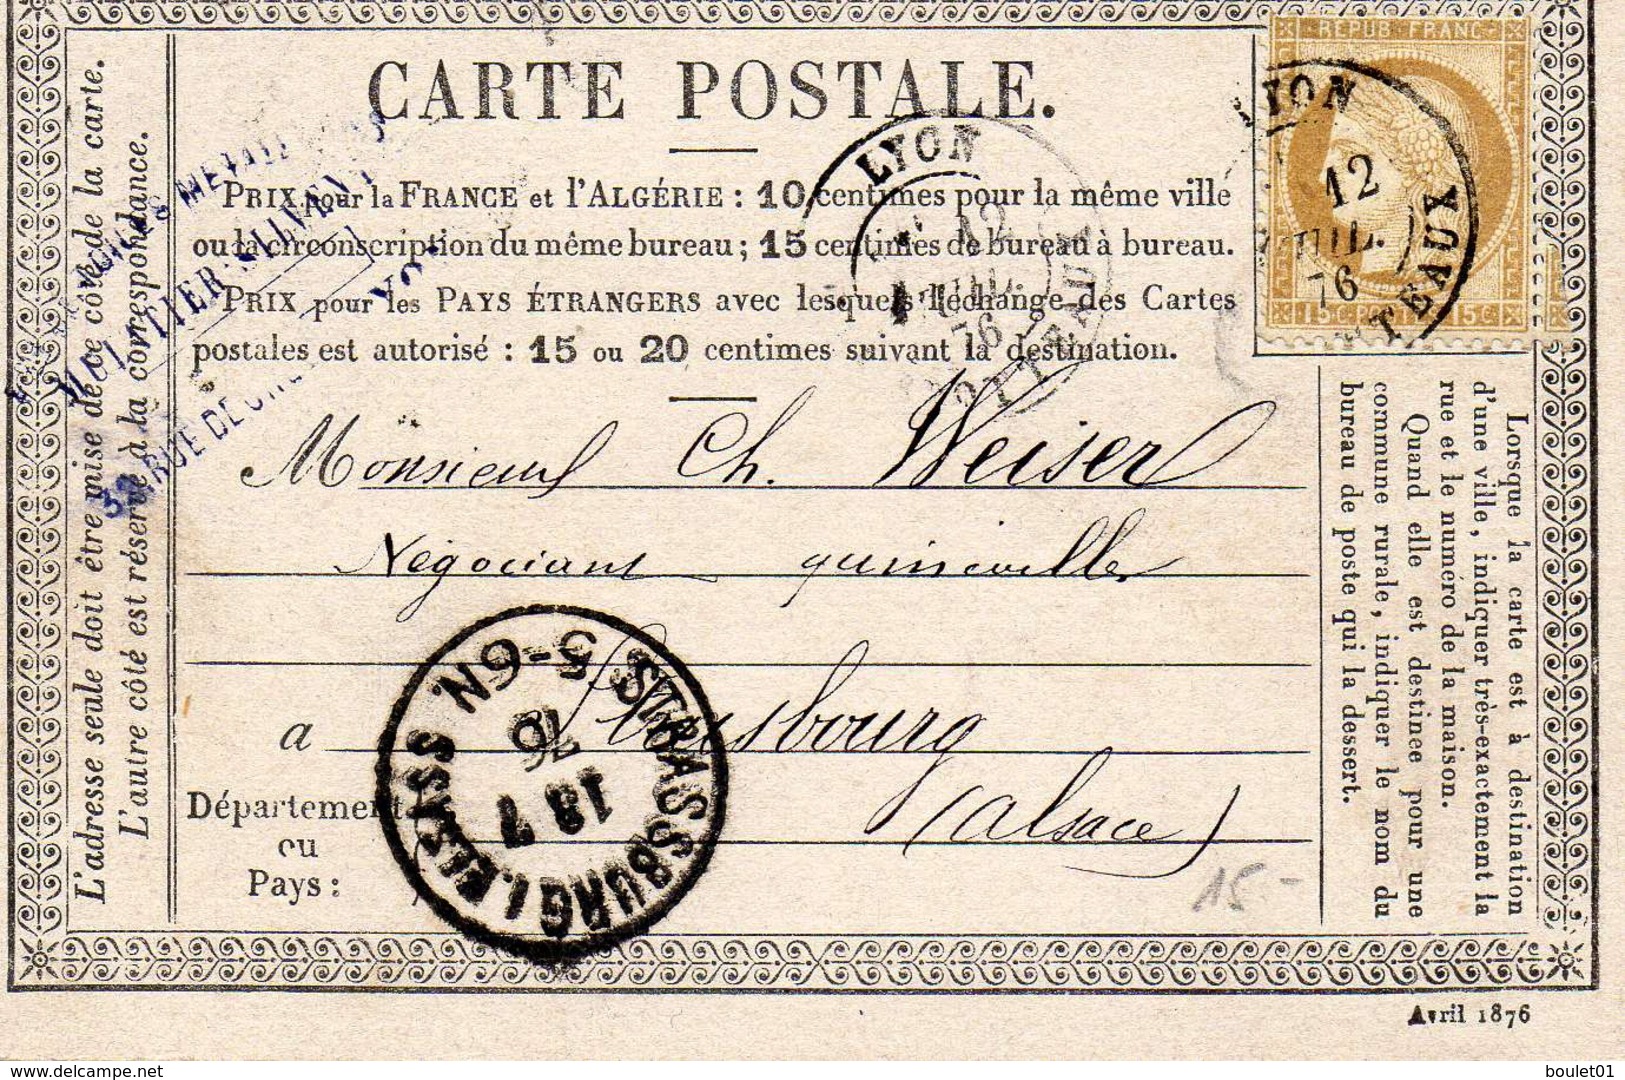 CARTE POSTALE.
PRIX pour la FRANCE et l'ALGÉRIE : 10 centimes pour la même ville
ou la circonscription du même bureau ; 15 centimes de bureau à bureau.
PRIX pour les PAYS ÉTRANGERS avec lesquels l'échange des Cartes
postales est autorisé : 15 ou 20 centimes suivant la destination.
REPUB FRANC
15 C
15 C
LYON
12
JUIL.
76
LYON
12
JUIL.
76
TEAUX
L'adresse seule doit être mise de ce côté de la carte.
L'autre côté est réservé à la correspondance.
RUE DE
Monsieur Ch. Weiser
Négociant quincailler
a Strasbourg
(Alsace)
Département
ou
Pays :
STRASSBURG I. ELSASS
5-6N.
76
13 7
15.-
Lorsque la carte est à destination
d'une ville, indiquer très-exactement la
rue et le numéro de la maison.
Quand elle est destinée pour une
commune rurale, indiquer le nom du
bureau de poste qui la dessert.
Avril 1876
www.delcampe.net
boulet01